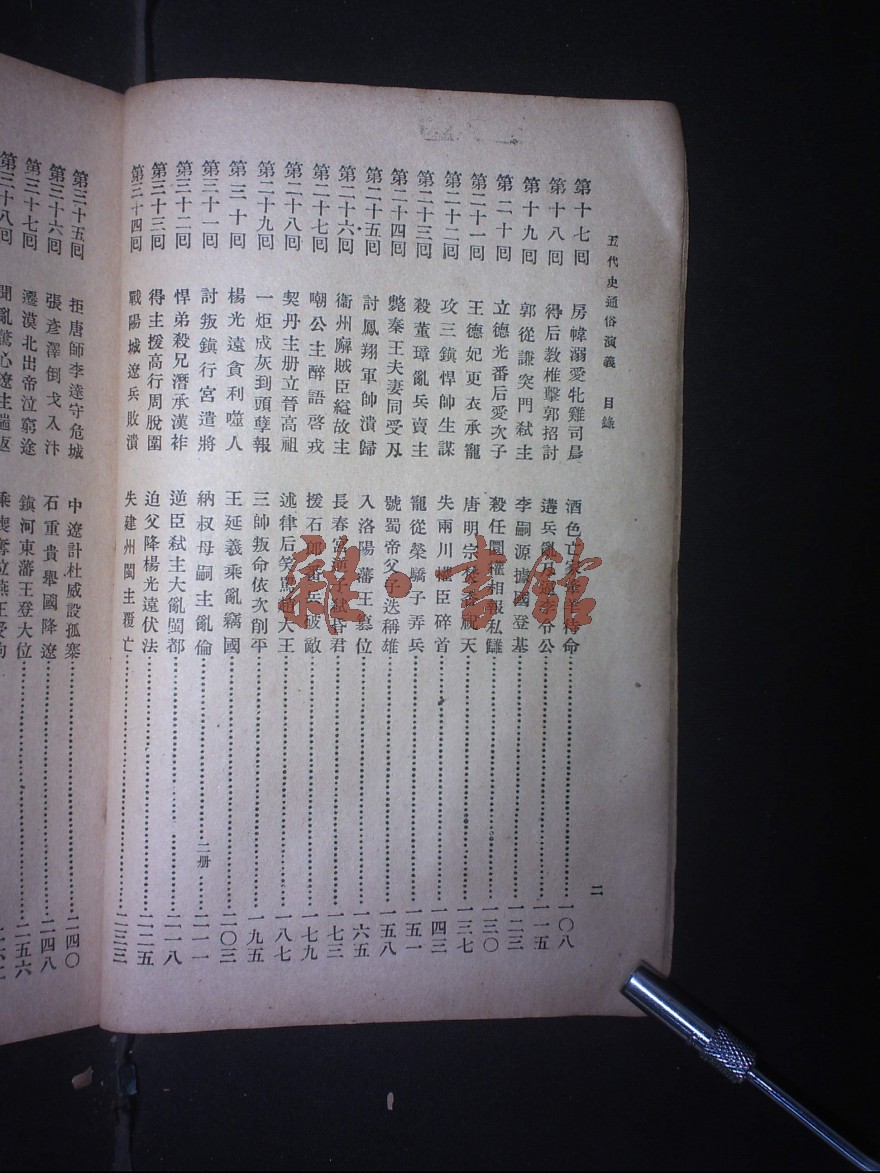 五代史通俗演義 目錄
二
第十七回 房幃溺愛牝雞司晨 酒色亡家 命 一〇八
第十八回 得后教椎擊郭招討 遘兵亂 令公 一一五
第十九回 郭從謙突門弒主 李嗣源據國登基 一二三
第二十回 立德光番后愛次子 殺任圜權相報私讎 一三〇
第二十一回 王德妃更衣承寵 唐明宗 祝天 一三七
第二十二回 攻三鎮悍帥生謀 失兩川權臣碎首 一四三
第二十三回 殺董璋亂兵賣主 寵從榮驕子弄兵 一五一
第二十四回 斃秦王夫妻同受刃 號蜀帝父子迭稱雄 一五八
第二十五回 討鳳翔軍帥潰歸 入洛陽藩王篡位 一六五
第二十六回 衞州廨賊臣縊故主 長春宮逆子弒昏君 一七三
第二十七回 嘲公主醉語啓戎 援石郎番兵破敵 一七九
第二十八回 契丹主册立晉高祖 述律后笑罵趙大王 一八七
第二十九回 一炬成灰到頭孽報 三帥叛命依次削平 一九五
第三十回 楊光遠貪利噬人 王延羲乘亂竊國 二〇三
第三十一回 討叛鎮行宮遣將 納叔母嗣主亂倫 二册 二一一
第三十二回 悍弟殺兄潛承漢祚 逆臣弒主大亂閩都 二一八
第三十三回 得主援高行周脫圍 迫父降楊光遠伏法 二二五
第三十四回 戰陽城遼兵敗潰 失建州閩主覆亡 二三三
第三十五回 拒唐師李達守危城 中遼計杜威設孤寨 二四〇
第三十六回 張彥澤倒戈入汴 石重貴舉國降遼 二四八
第三十七回 遷漠北出帝泣窮途 鎮河東藩王登大位 二五六
第三十八回 聞亂驚心遼主遄返 乘喪奪位燕王受拘
雜·書館